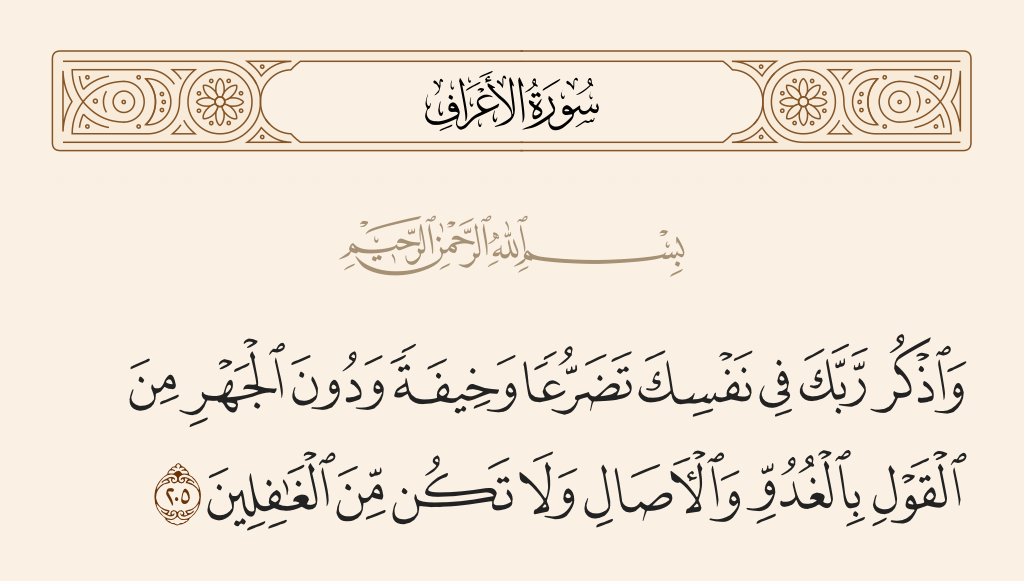 سُورَةُ الأَعْرَافِ
بِسْمِ ٱللَّهِ ٱلرَّحْمَٰنِ ٱلرَّحِيمِ
وَٱذْكُر رَّبَّكَ فِى نَفْسِكَ تَضَرُّعًا وَخِيفَةً وَدُونَ ٱلْجَهْرِ مِنَ
ٱلْقَوْلِ بِٱلْغُدُوِّ وَٱلْـَٔاصَالِ وَلَا تَكُن مِّنَ ٱلْغَٰفِلِينَ ٢٠٥